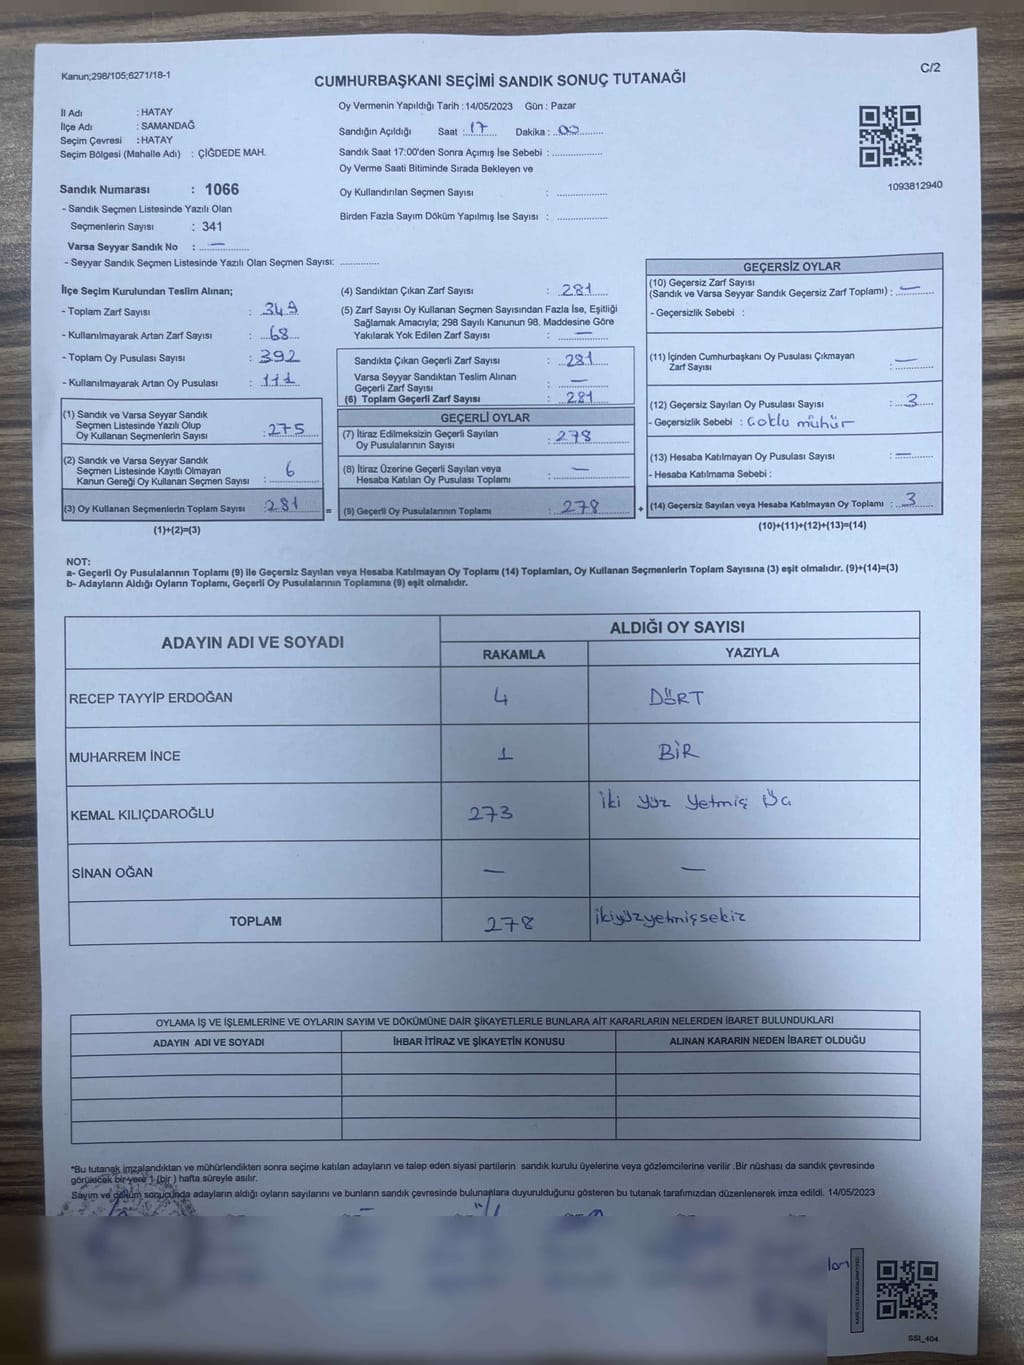 Kanun;298/105;6271/18-1
C/2
CUMHURBAŞKANI SEÇİMİ SANDIK SONUÇ TUTANAĞI
İl Adı : HATAY
İlçe Adı : SAMANDAĞ
Seçim Çevresi : HATAY
Seçim Bölgesi (Mahalle Adı) : ÇİĞDEDE MAH.
Sandık Numarası : 1066
- Sandık Seçmen Listesinde Yazılı Olan
Seçmenlerin Sayısı : 341
Varsa Seyyar Sandık No : —
- Seyyar Sandık Seçmen Listesinde Yazılı Olan Seçmen Sayısı: ..............
Oy Vermenin Yapıldığı Tarih :14/05/2023 Gün : Pazar
Sandığın Açıldığı Saat : 17 Dakika : 00
Sandık Saat 17:00'den Sonra Açımış İse Sebebi : ..................
Oy Verme Saati Bitiminde Sırada Bekleyen ve
Oy Kullandırılan Seçmen Sayısı : ..................
Birden Fazla Sayım Döküm Yapılmış İse Sayısı : ..................
1093812940
İlçe Seçim Kurulundan Teslim Alınan;
- Toplam Zarf Sayısı : 349
- Kullanılmayarak Artan Zarf Sayısı : 68
- Toplam Oy Pusulası Sayısı : 392
- Kullanılmayarak Artan Oy Pusulası : 111
(1) Sandık ve Varsa Seyyar Sandık
Seçmen Listesinde Yazılı Olup
Oy Kullanan Seçmenlerin Sayısı : 275
(2) Sandık ve Varsa Seyyar Sandık
Seçmen Listesinde Kayıtlı Olmayan
Kanun Gereği Oy Kullanan Seçmen Sayısı : 6
(3) Oy Kullanan Seçmenlerin Toplam Sayısı : 281
(1)+(2)=(3)
(4) Sandıktan Çıkan Zarf Sayısı : 281
(5) Zarf Sayısı Oy Kullanan Seçmen Sayısından Fazla İse, Eşitliği
Sağlamak Amacıyla; 298 Sayılı Kanunun 98. Maddesine Göre
Yakılarak Yok Edilen Zarf Sayısı : —
Sandıkta Çıkan Geçerli Zarf Sayısı : 281
Varsa Seyyar Sandıktan Teslim Alınan
Geçerli Zarf Sayısı : —
(6) Toplam Geçerli Zarf Sayısı : 281
GEÇERLİ OYLAR
(7) İtiraz Edilmeksizin Geçerli Sayılan
Oy Pusulalarının Sayısı : 278
(8) İtiraz Üzerine Geçerli Sayılan veya
Hesaba Katılan Oy Pusulası Toplamı : —
=
(9) Geçerli Oy Pusulalarının Toplamı : 278
+
GEÇERSİZ OYLAR
(10) Geçersiz Zarf Sayısı
(Sandık ve Varsa Seyyar Sandık Geçersiz Zarf Toplamı) : —
- Geçersizlik Sebebi :
(11) İçinden Cumhurbaşkanı Oy Pusulası Çıkmayan
Zarf Sayısı : —
(12) Geçersiz Sayılan Oy Pusulası Sayısı : 3
- Geçersizlik Sebebi : Çoklu mühür
(13) Hesaba Katılmayan Oy Pusulası Sayısı : —
- Hesaba Katılmama Sebebi :
(14) Geçersiz Sayılan veya Hesaba Katılmayan Oy Toplamı : 3
(10)+(11)+(12)+(13)=(14)
NOT:
a- Geçerli Oy Pusulalarının Toplamı (9) ile Geçersiz Sayılan veya Hesaba Katılmayan Oy Toplamı (14) Toplamları, Oy Kullanan Seçmenlerin Toplam Sayısına (3) eşit olmalıdır. (9)+(14)=(3)
b- Adayların Aldığı Oyların Toplamı, Geçerli Oy Pusulalarının Toplamına (9) eşit olmalıdır.
ADAYIN ADI VE SOYADI
ALDIĞI OY SAYISI
RAKAMLA YAZIYLA
RECEP TAYYİP ERDOĞAN 4 DÖRT
MUHARREM İNCE 1 BİR
KEMAL KILIÇDAROĞLU 273 İki yüz yetmiş Üç
SİNAN OĞAN — —
TOPLAM 278 ikiyüzyetmişsekiz
OYLAMA İŞ VE İŞLEMLERİNE VE OYLARIN SAYIM VE DÖKÜMÜNE DAİR ŞİKAYETLERLE BUNLARA AİT KARARLARIN NELERDEN İBARET BULUNDUKLARI
ADAYIN ADI VE SOYADI İHBAR İTİRAZ VE ŞİKAYETİN KONUSU ALINAN KARARIN NEDEN İBARET OLDUĞU
*Bu tutanak imzalandıktan ve mühürlendikten sonra seçime katılan adayların ve talep eden siyasi partilerin sandık kurulu üyelerine veya gözlemcilerine verilir .Bir nüshası da sandık çevresinde
görülecek bir yere 1 (bir ) hafta süreyle asılır.
Sayım ve döküm sonucunda adayların aldığı oyların sayılarını ve bunların sandık çevresinde bulunanlara duyurulduğunu gösteren bu tutanak tarafımızdan düzenlenerek imza edildi. 14/05/2023
SSI_404